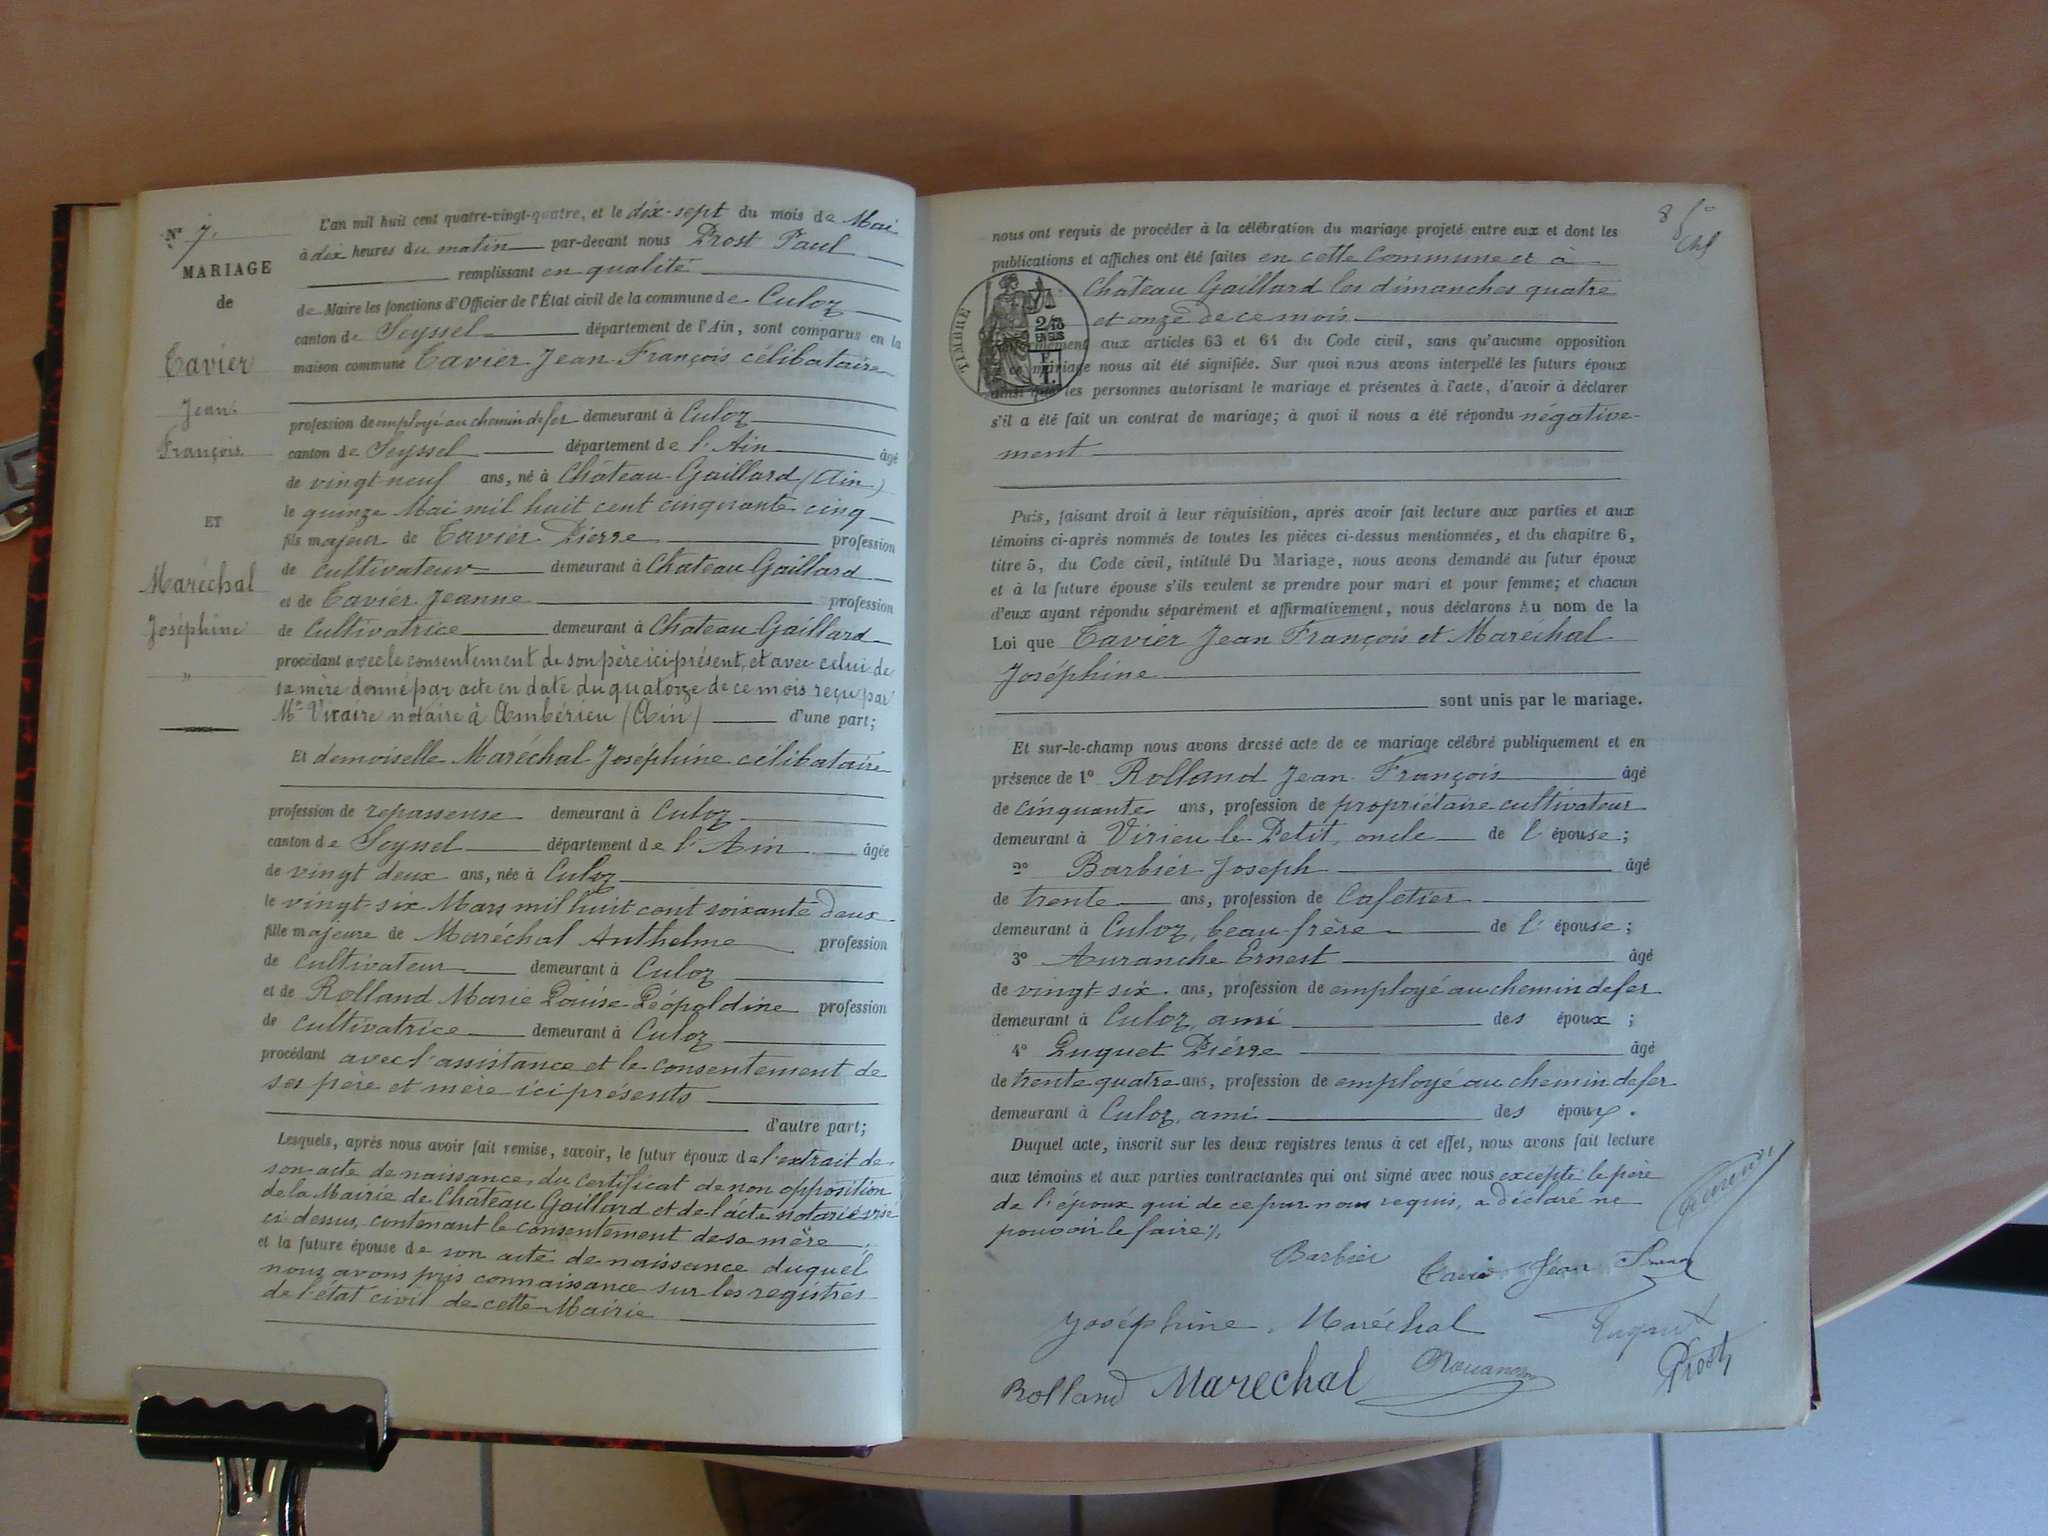 N° 7.
MARIAGE
de
Tavier
Jean
François
ET
Maréchal
Joséphine
"
L'an mil huit cent quatre-vingt-quatre, et le dix-sept du mois de Mai
à dix heures du matin par-devant nous Prost Paul
remplissant en qualité
de Maire les fonctions d'Officier de l'État civil de la commune de Culoz
canton de Seyssel département de l'Ain, sont comparus en la
maison commune Tavier Jean François célibataire
profession de employé au chemin de fer demeurant à Culoz
canton de Seyssel département de l'Ain âgé
de vingt neuf ans, né à Château-Gaillard (Ain)
le quinze Mai mil huit cent cinquante cinq
fils majeur de Tavier Pierre profession
de cultivateur demeurant à Chateau Gaillard
et de Tavier Jeanne profession
de Cultivatrice demeurant à Chateau-Gaillard
procédant avec le consentement de son père ici présent, et avec celui de
sa mère donné par acte en date du quatorze de ce mois reçu par
Me Vicaire notaire à Ambérieu (Ain) d'une part;
Et demoiselle Maréchal Joséphine célibataire
profession de repasseuse demeurant à Culoz
canton de Seyssel département de l'Ain âgée
de vingt deux ans, née à Culoz
le vingt-six Mars mil huit cent soixante deux
fille majeure de Maréchal Anthelme profession
de cultivateur demeurant à Culoz
et de Rolland Marie Louise Léopoldine profession
de cultivatrice demeurant à Culoz
procédant avec l'assistance et le consentement de
ses père et mère ici présents
d'autre part;
Lesquels, après nous avoir fait remise, savoir, le futur époux de l'extrait de
son acte de naissance, du certificat de non opposition
de la Mairie de Château Gaillard et de l'acte notarié visé
ci dessus, contenant le consentement de sa mère,
et la future épouse de son acte de naissance duquel
nous avons pris connaissance sur les registres
de l'état civil de cette Mairie
8
nous ont requis de procéder à la célébration du mariage projeté entre eux et dont les
publications et affiches ont été faites en cette Commune et à
Château Gaillard les dimanches quatre
et onze de ce mois
TIMBRE
2/10
EN SUS
aux articles 63 et 64 du Code civil, sans qu'aucune opposition
ce mariage nous ait été signifiée. Sur quoi nous avons interpellé les futurs époux
ainsi que les personnes autorisant le mariage et présentes à l'acte, d'avoir à déclarer
s'il a été fait un contrat de mariage; à quoi il nous a été répondu négative-
ment
Puis, faisant droit à leur réquisition, après avoir fait lecture aux parties et aux
témoins ci-après nommés de toutes les pièces ci-dessus mentionnées, et du chapitre 6,
titre 5, du Code civil, intitulé Du Mariage, nous avons demandé au futur époux
et à la future épouse s'ils veulent se prendre pour mari et pour femme; et chacun
d'eux ayant répondu séparément et affirmativement, nous déclarons Au nom de la
Loi que Tavier Jean François et Maréchal
Joséphine
sont unis par le mariage.
Et sur-le-champ nous avons dressé acte de ce mariage célébré publiquement et en
présence de 1° Rolland Jean-François âgé
de cinquante ans, profession de propriétaire cultivateur
demeurant à Virieu le Petit, oncle de l'épouse;
2° Barbier Joseph âgé
de trente ans, profession de Cafetier
demeurant à Culoz, beau-frère de l'épouse;
3° Auranche Ernest âgé
de vingt-six ans, profession de employé au chemin de fer
demeurant à Culoz, ami des époux;
4° Duquet Pierre âgé
de trente quatre ans, profession de employé au chemin de fer
demeurant à Culoz, ami des époux.
Duquel acte, inscrit sur les deux registres tenus à cet effet, nous avons fait lecture
aux témoins et aux parties contractantes qui ont signé avec nous excepté le père
de l'époux qui de ce par nous requis, a déclaré ne
pouvoir le faire
Barbier
Tavier Jean
Joséphine Maréchal
Rolland Marechal
Prost